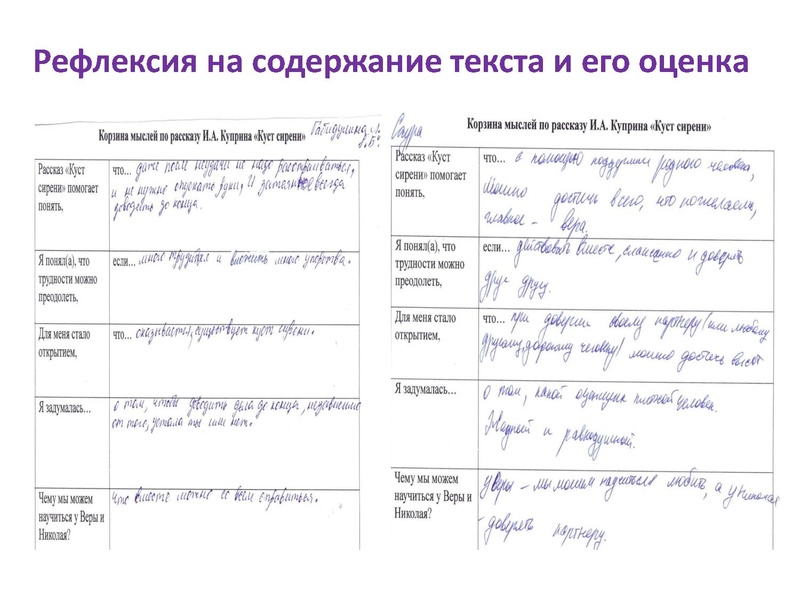 Рефлексия на содержание текста и его оценка
Корзина мыслей по рассказу И.А. Куприна «Куст сирени»
Габидуллина Л.
Рассказ «Куст
сирени» помогает
понять,
что... даже после неудачи не надо расстраиваться,
и не нужно опускать руки, И
доводить до конца.
Я понял(а), что
трудности можно
преодолеть,
если... много трудиться и вложить много упорства.
Для меня стало
открытием,
что... оказывается, существует куст сирени.
Я задумалась...
о том, чтобы доводить дела до конца, независимо
от того, устала ты или нет.
Чему мы можем
научиться у Веры и
Николая?
Что вместе можно со всем справиться.
Саура
Корзина мыслей по рассказу И.А. Куприна «Куст сирени»
Рассказ «Куст
сирени» помогает
понять,
что... с помощью поддержки родного человека,
можно достичь всего, что пожелаем,
главное - вера.
Я понял(а), что
трудности можно
преодолеть,
если... действовать вместе, слаженно и доверять
друг другу.
Для меня стало
открытием,
что... при доверии своему партнеру (или любому
другому, дорогому человеку) можно достичь высот
Я задумалась...
о том, какой офицер плохой человек.
Жадный и равнодушный.
Чему мы можем
научиться у Веры и
Николая?
у Веры - мы можем научиться любить, а у Николая
- доверять партнеру.